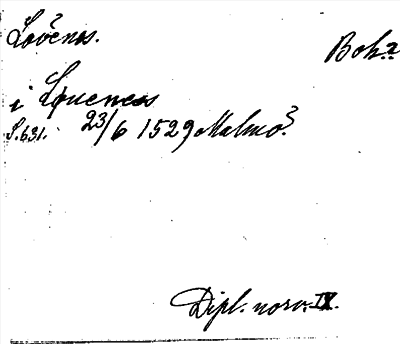 Lövenes.
Boh.?
i Lyueness
S. 631. 23/6 1529 Malmö?
Dipl. norv. IX.